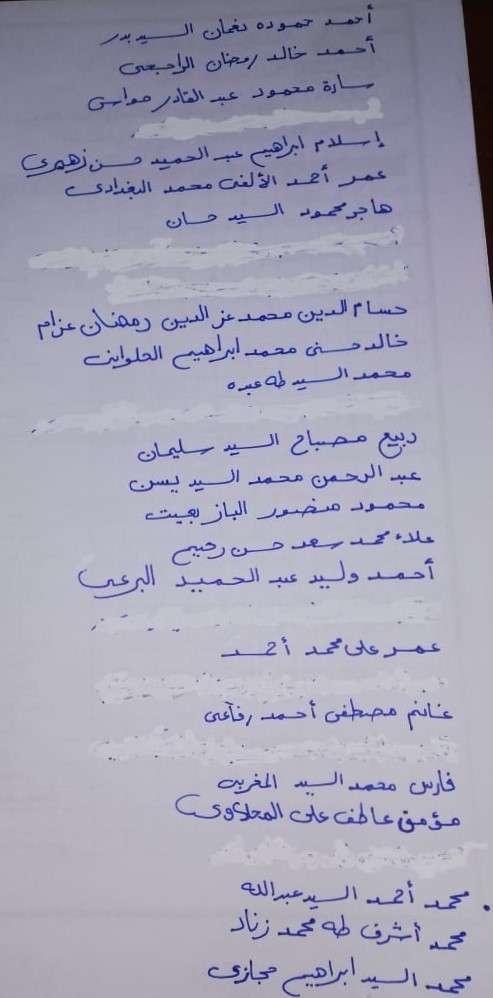 أحمد حموده نعمان السيد بدر
أحمد خالد رمضان الراجحى
سارة محمود عبد القادر حواس
إسلام ابراهيم عبد الحميد حسن زهيرى
عمر أحمد الألفى محمد البغدادى
هاجر محمود السيد حسان
حسام الدين محمد عز الدين رمضان عزام
خالد حسنى محمد ابراهيم الحلوانى
محمد السيد طه عبده
ربيع مصباح السيد سليمان
عبد الرحمن محمد السيد يسن
محمود منصور الباز
علاء محمد سعد حسن رحيم
أحمد وليد عبد الحميد البرعى
عمر على محمد أحمد
غانم مصطفى أحمد رفاعى
فارس محمد السيد المغربى
مؤمن عاطف على المحلاوى
محمد أحمد السيد عبدالله
محمد أشرف طه محمد زناد
محمد السيد ابراهيم حجازى